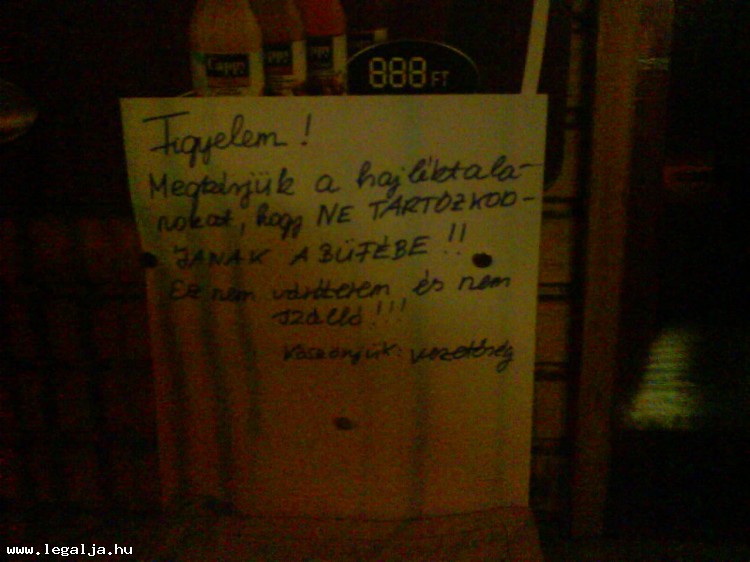 Cappy
888 FT
Figyelem!
Megkérjük a hajléktala-
nokat, hogy NE TARTÓZKOD-
JANAK A BÜFÉBE!!
Ez nem váróterem és nem
szálló!!!
Köszönjük: vezetőség
www.legalja.hu